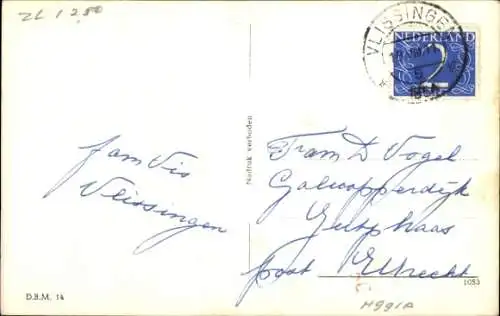 ZL 1 250
VLISSINGEN
NEDERLAND
2
Fam Vis
Vlissingen
Nadruk verboden
Fam D Vogel
Galecopperdijk
Jutphaas
post Utrecht
D.B.M. 14
1053
H991A